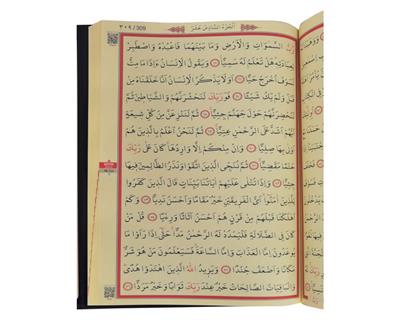 ٣٠٩ / 309 الجزء السادس عشر
رَبُّ السَّمٰوَاتِ وَالْاَرْضِ وَمَا بَيْنَهُمَا فَاعْبُدْهُ وَاصْطَبِرْ
لِعِبَادَتِهِ هَلْ تَعْلَمُ لَهُ سَمِيًّا ﴿٦٥﴾ وَيَقُولُ الْاِنْسَانُ ءَاِذَا مَا مِتُّ
لَسَوْفَ اُخْرَجُ حَيًّا ﴿٦٦﴾ اَوَلَا يَذْكُرُ الْاِنْسَانُ اَنَّا خَلَقْنَاهُ مِنْ
قَبْلُ وَلَمْ يَكُ شَيْـًٔا ﴿٦٧﴾ فَوَرَبِّكَ لَنَحْشُرَنَّهُمْ وَالشَّيَاطِينَ ثُمَّ
لَنُحْضِرَنَّهُمْ حَوْلَ جَهَنَّمَ جِثِيًّا ﴿٦٨﴾ ثُمَّ لَنَنْزِعَنَّ مِنْ كُلِّ شِيعَةٍ
اَيُّهُمْ اَشَدُّ عَلَى الرَّحْمٰنِ عِتِيًّا ﴿٦٩﴾ ثُمَّ لَنَحْنُ اَعْلَمُ بِالَّذِينَ هُمْ
اَوْلٰى بِهَا صِلِيًّا ﴿٧٠﴾ وَاِنْ مِنْكُمْ اِلَّا وَارِدُهَا كَانَ عَلٰى رَبِّكَ
حَتْمًا مَقْضِيًّا ﴿٧١﴾ ثُمَّ نُنَجِّي الَّذِينَ اتَّقَوْا وَنَذَرُ الظَّالِمِينَ فِيهَا
جِثِيًّا ﴿٧٢﴾ وَاِذَا تُتْلٰى عَلَيْهِمْ اٰيَاتُنَا بَيِّنَاتٍ قَالَ الَّذِينَ كَفَرُوا
لِلَّذِينَ اٰمَنُوا اَيُّ الْفَرِيقَيْنِ خَيْرٌ مَقَامًا وَاَحْسَنُ نَدِيًّا ﴿٧٣﴾ وَكَمْ
اَهْلَكْنَا قَبْلَهُمْ مِنْ قَرْنٍ هُمْ اَحْسَنُ اَثَاثًا وَرِءْيًا ﴿٧٤﴾ قُلْ مَنْ
كَانَ فِي الضَّلَالَةِ فَلْيَمْدُدْ لَهُ الرَّحْمٰنُ مَدًّا حَتّٰى اِذَا رَاَوْا مَا
يُوعَدُونَ اِمَّا الْعَذَابَ وَاِمَّا السَّاعَةَ فَسَيَعْلَمُونَ مَنْ هُوَ شَرٌّ
مَكَانًا وَاَضْعَفُ جُنْدًا ﴿٧٥﴾ وَيَزِيدُ اللّٰهُ الَّذِينَ اهْتَدَوْا هُدًى
وَالْبَاقِيَاتُ الصَّالِحَاتُ خَيْرٌ عِنْدَ رَبِّكَ ثَوَابًا وَخَيْرٌ مَرَدًّا ﴿٧٦﴾